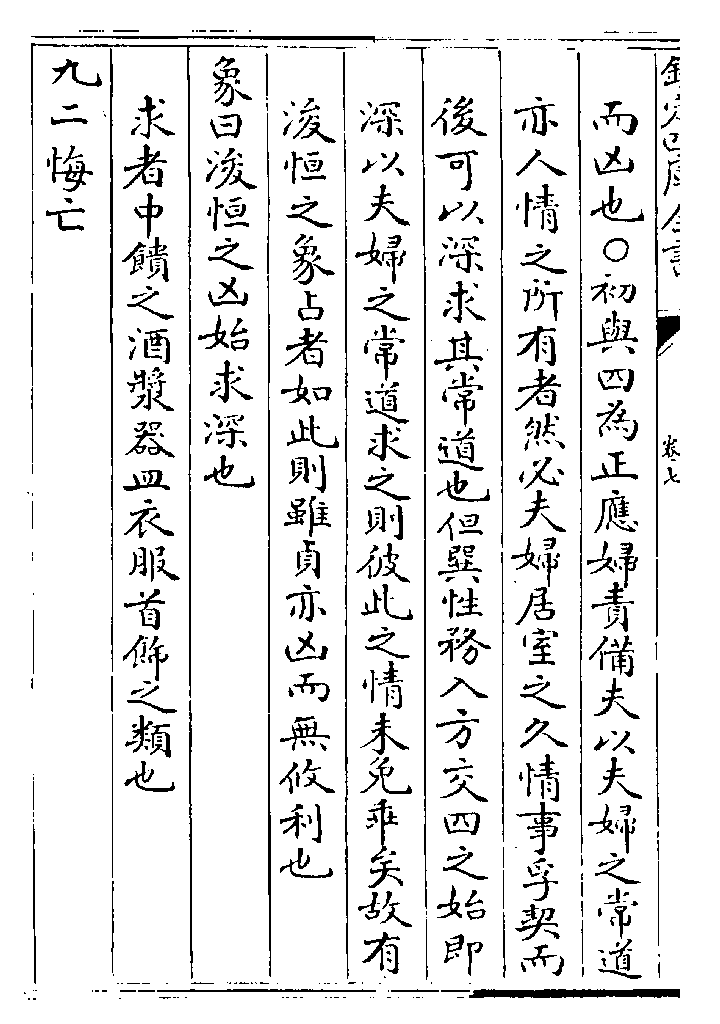 欽定四庫全書
卷七
而凶也○初與四為正應婦責備夫以夫婦之常道
亦人情之所有者然必夫婦居室之久情事孚契而
後可以深求其常道也但巽性務入方交四之始即
深以夫婦之常道求之則彼此之情未免乖矣故有
浚恒之象占者如此則雖貞亦凶而無攸利也
象曰浚恒之凶始求深也
求者中饋之酒漿器皿衣服首飾之類也
九二悔亡